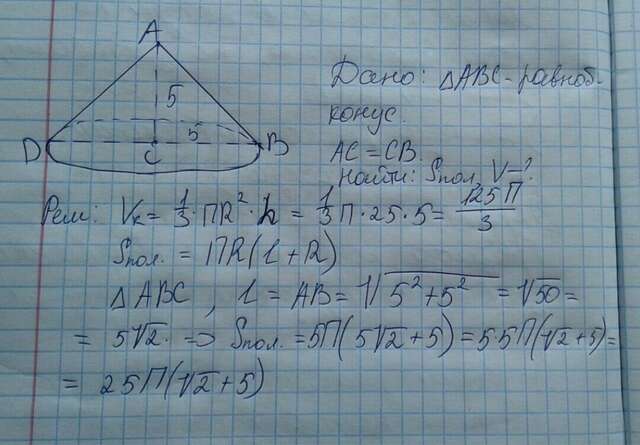 A
5
5
D
C
B
Дано: △ABC - равноб.
конус.
AC = CB.
Найти: Sпол, V - ?
Реш: Vк = 1/3 · ПR² · h = 1/3 П · 25 · 5 = 125П/3
Sпол. = ПR(l + R)
△ABC, l = AB = √5² + 5² = √50 =
= 5√2. => Sпол. = 5П(5√2 + 5) = 5 5П(√2 + 5) =
= 25П(√2 + 5)